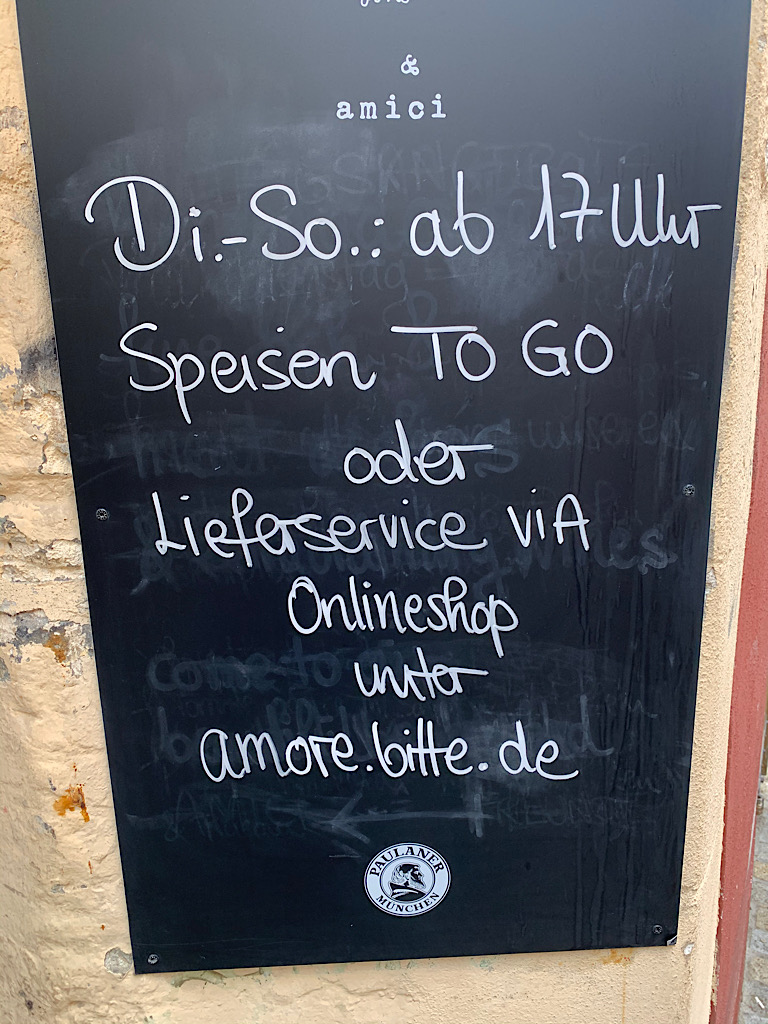 &
amici
Di.-So.: ab 17 Uhr
Speisen TO GO
oder
Lieferservice viA
Onlineshop
unter
amore.bitte.de
PAULANER
MÜNCHEN